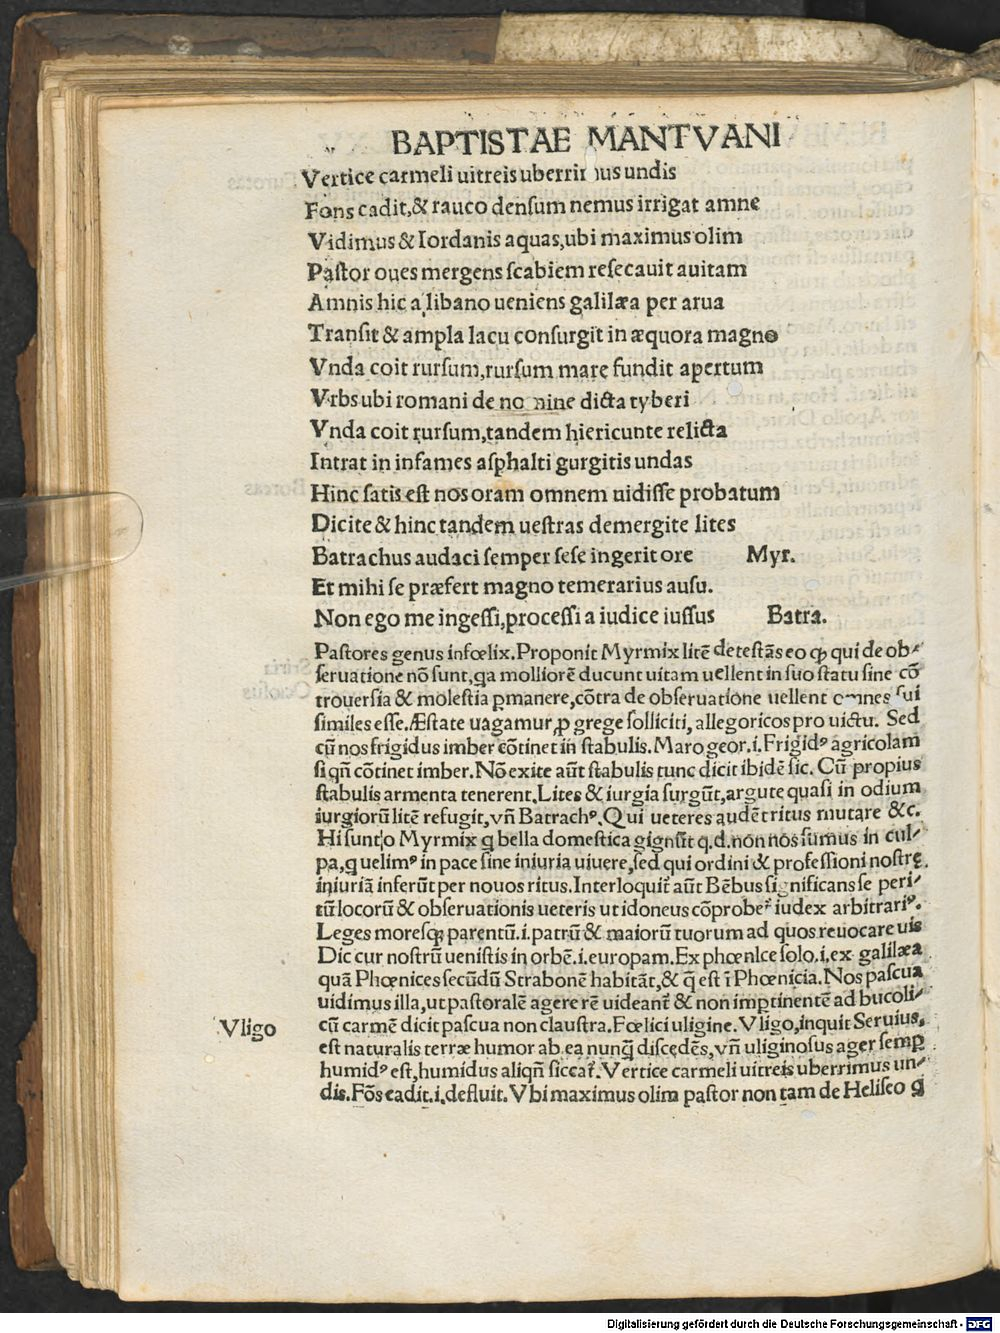 BAPTISTAE MANTVANI
Vertice carmeli uitreis uberrimus undis
Fons cadit,& rauco densum nemus irrigat amne
Vidimus & Iordanis aquas,ubi maximus olim
Pastor oues mergens scabiem resecauit auitam
Amnis hic a libano ueniens galilæa per arua
Transit & ampla lacu consurgit in æquora magno
Vnda coit rursum,rursum mare fundit apertum
Vrbs ubi romani de nomine dicta tyberi
Vnda coit rursum,tandem hiericunte relicta
Intrat in infames asphalti gurgitis undas
Hinc satis est nos oram omnem uidisse probatum
Dicite & hinc tandem uestras demergite lites
Batrachus audaci semper sese ingerit ore Myr.
Et mihi se præfert magno temerarius ausu.
Non ego me ingessi,processi a iudice iussus Batra.
Pastores genus infœlix.Proponit Myrmix litē detestãs eo ꝙ qui de ob⸗
seruatione nõ sunt,qa molliorē ducunt uitam uellent in suo statu sine cõ
trouersia & molestia ꝑmanere,cõtra de obseruatione uellent omnes sui
similes esse.Æstate uagamur ꝓ grege solliciti, allegoricos pro uictu. Sed
cũ nos frigidus imber cõtinet in stabulis.Maro geor.i.Frigidꝰ agricolam
si qñ cõtinet imber.Nõ exite aũt stabulis tunc dicit ibidē sic. Cũ propius
stabulis armenta tenerent.Lites & iurgia surgũt,argute quasi in odium
iurgiorũ litē refugit,vñ Batrachꝰ.Qui ueteres audēt ritus mutare &c.
Hi sunt o Myrmix q bella domestica gignũt q.d.non nos sumus in cul⸗
pa,q uelimꝰ in pace sine iniuria uiuere,sed qui ordini & professioni nostrę
iniuriã inferũt per nouos ritus.Interloquit̃ aũt Bēbus significans se peri⸗
tũ locorũ & obseruationis ueteris ut idoneus cõprobet̃ iudex arbitrariꝰ.
Leges moresqꝫ parentũ.i.patrũ & maiorũ tuorum ad quos reuocare uis
Dic cur nostrũ uenistis in orbē.i.europam.Ex phœnice solo.i.ex galilæa
quã Phœnices secũdũ Strabonē habitãt,& q̃ est ĩ Phœnicia.Nos pascua
uidimus illa,ut pastoralē agere rē uideant̃ & non imꝑtinentē ad bucoli⸗
cũ carmē dicit pascua non claustra.Fœlici uligine.Vligo,inquit Seruius,
Vligo
est naturalis terræ humor ab ea nunq̃ discedēs,vñ uliginosus ager semꝑ
humidꝰ est,humidus aliqñ siccat̃.Vertice carmeli uitreis uberrimus un⸗
dis.Fõs cadit.i.defluit.Vbi maximus olim pastor non tam de Heliseo q
Digitalisierung gefördert durch die Deutsche Forschungsgemeinschaft - DFG